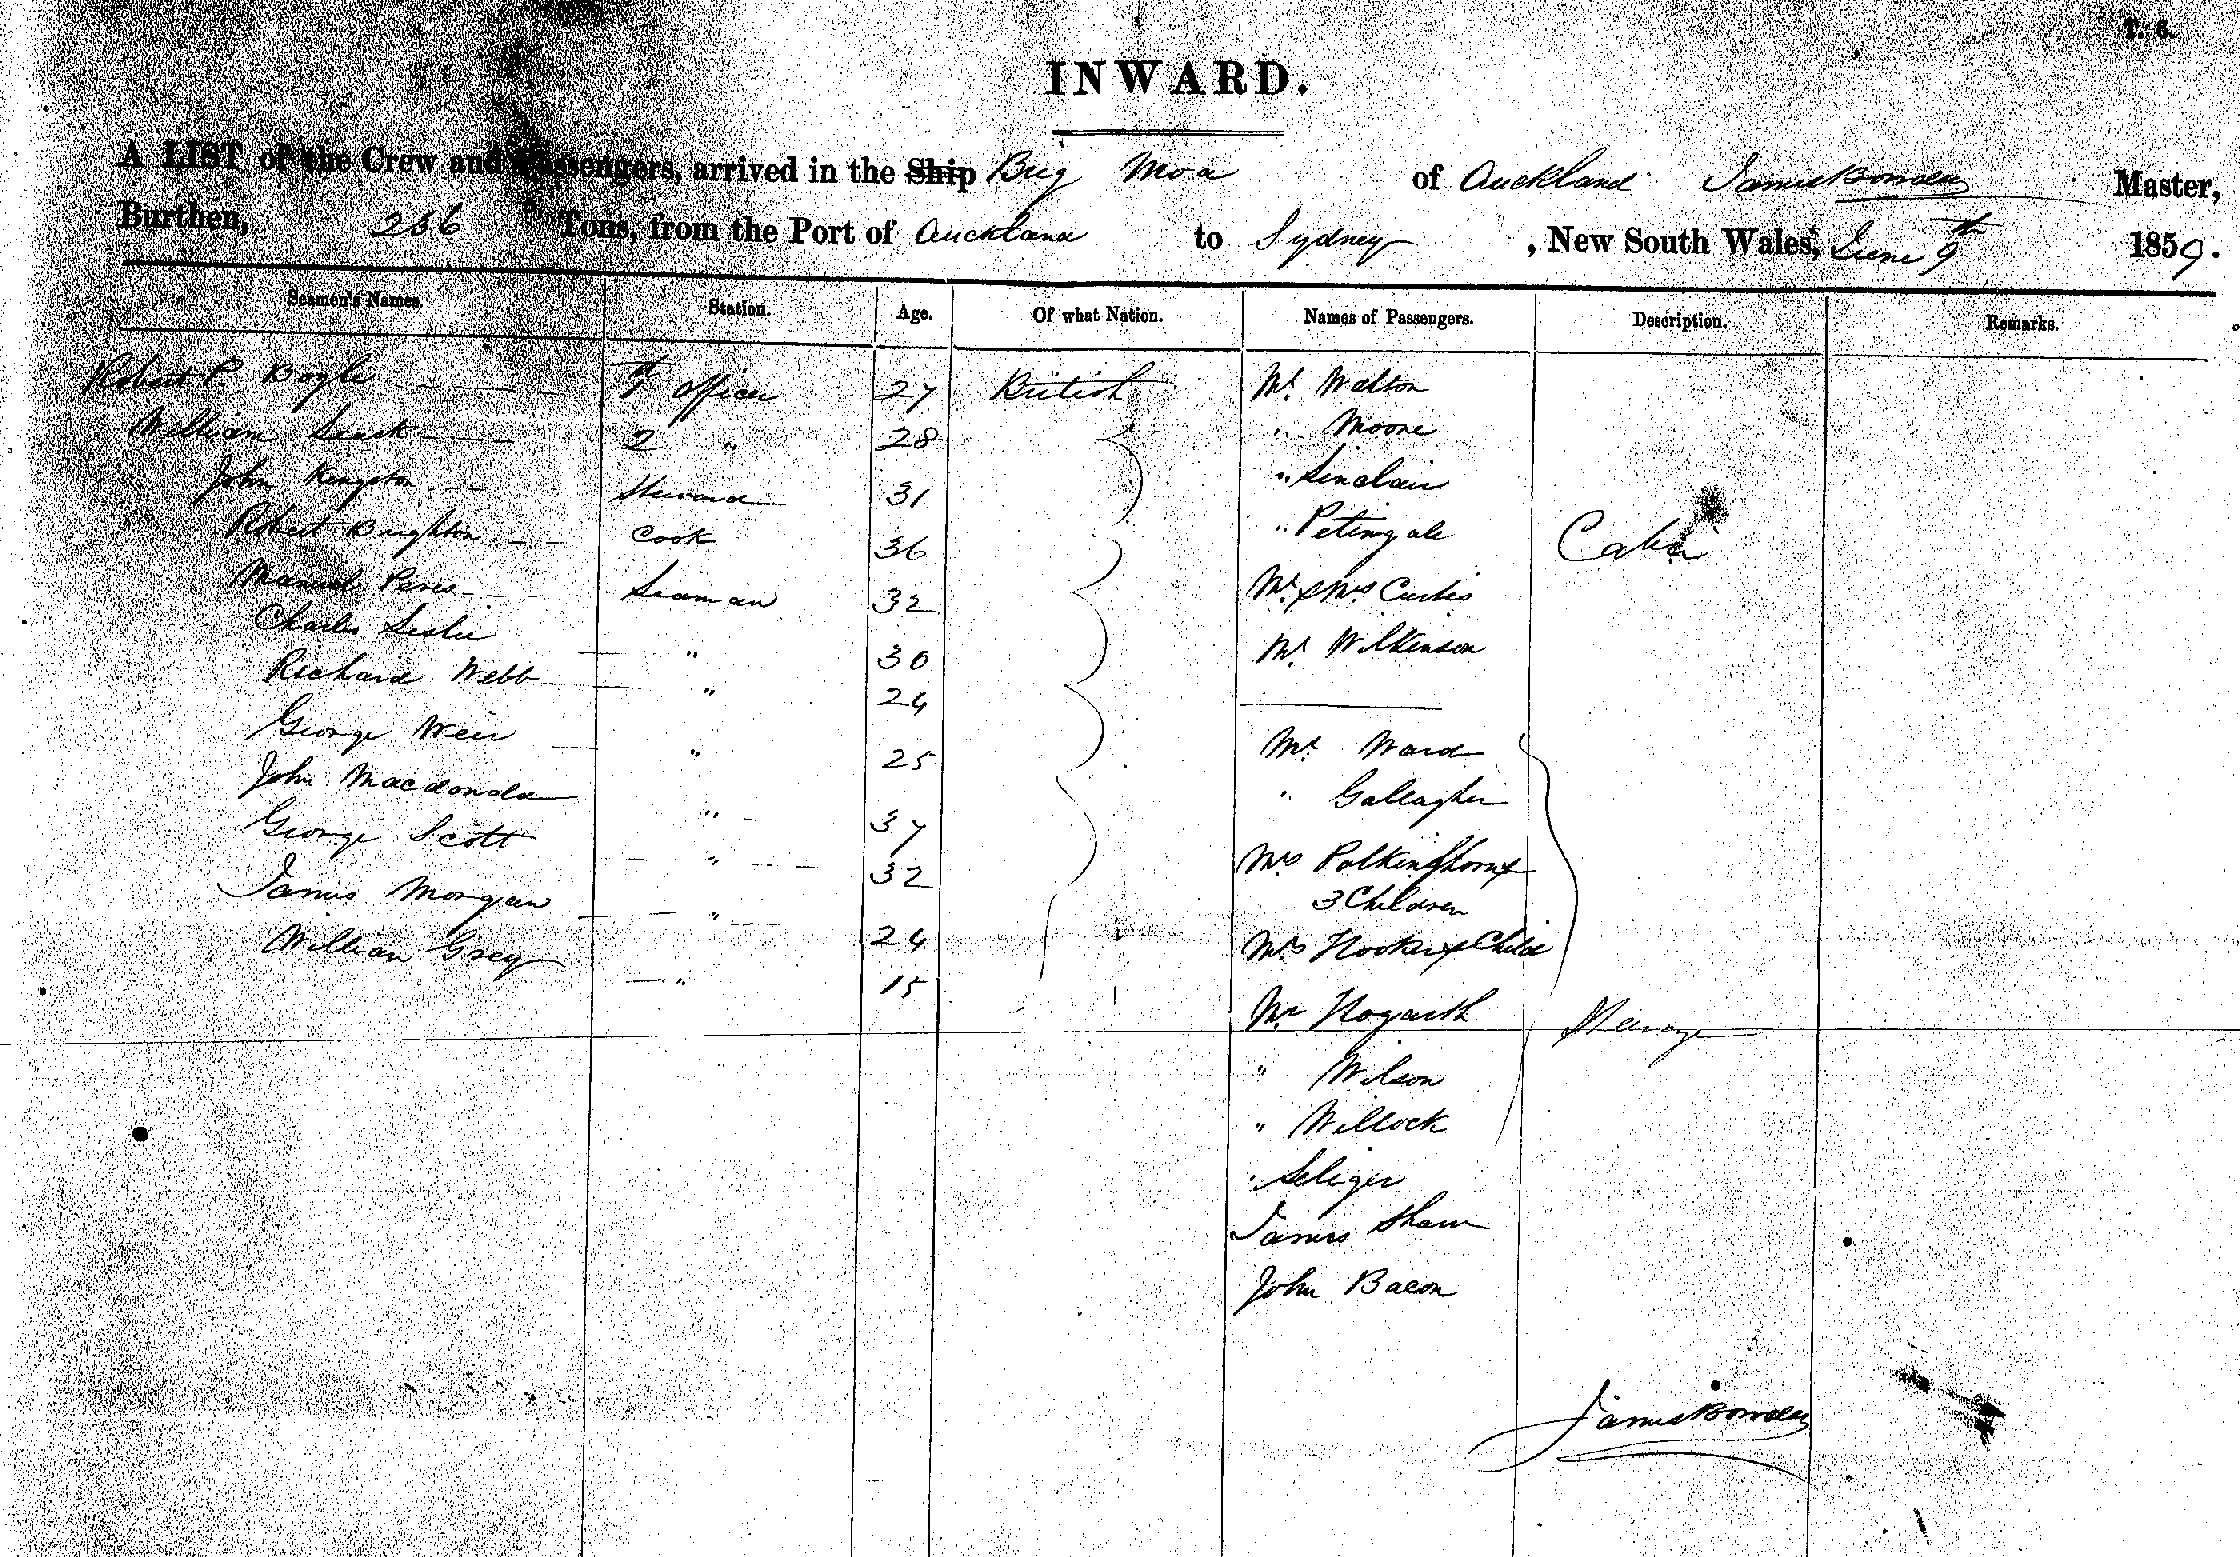 T. 6.
INWARD.
A LIST of the Crew and Passengers, arrived in the Ship Brig Moa of Auckland James Bowden Master,
Burthen, 236 Tons, from the Port of Auckland to Sydney, New South Wales, June 9th 1859.
Seamen's Names. Station. Age. Of what Nation. Names of Passengers. Description. Remarks.
Robert P. Bogle 1st Officer 27 British Mr Walton
William Leask 2 " 28 " Moore
John Kingston Steward 31 " Sinclair
Robert Brighton Cook 36 " Petingale Cabin
Manuel Peres Seaman 32 Mr & Mrs Curtis
Charles Leslie " 30 Mr Wilkinson
Richard Webb " 24
George Weir " 25 Mr Ward
John Macdonald " 37 " Gallagher
George Scott " 32 Mrs Polkinghorn &
3 Children
James Morgan " 24 Mrs Hooker & Child
William Grey " 15 Mr Hogarth Steerage
" Wilson
" Willock
" Seliger
James Shaw
John Bacon
James Bowden